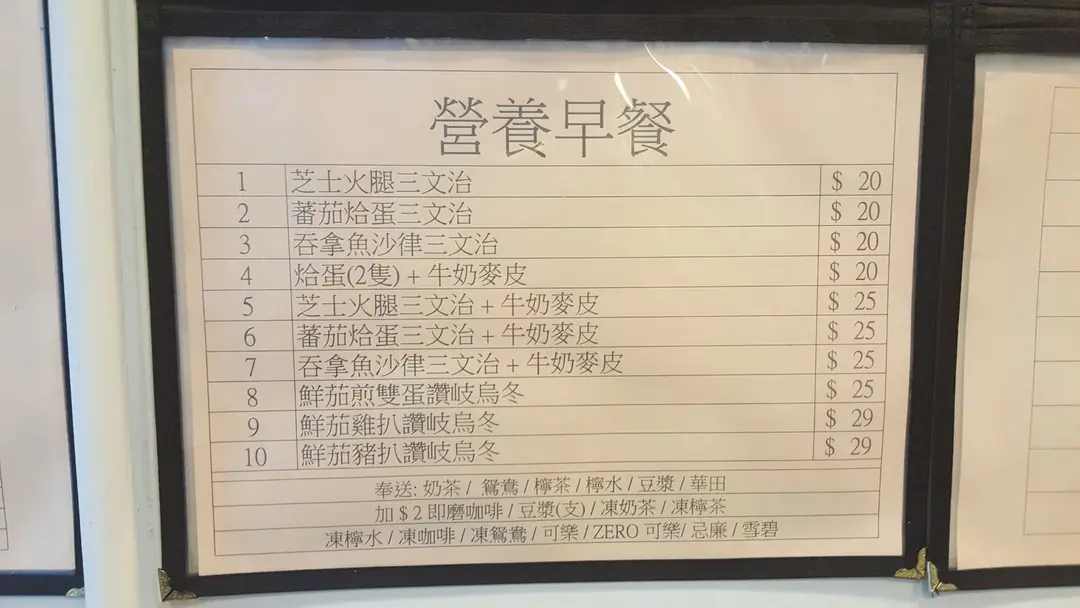 營養早餐
1 芝士火腿三文治 $ 20
2 蕃茄烚蛋三文治 $ 20
3 吞拿魚沙律三文治 $ 20
4 烚蛋(2隻) + 牛奶麥皮 $ 20
5 芝士火腿三文治 + 牛奶麥皮 $ 25
6 蕃茄烚蛋三文治 + 牛奶麥皮 $ 25
7 吞拿魚沙律三文治 + 牛奶麥皮 $ 25
8 鮮茄煎雙蛋讚岐烏冬 $ 25
9 鮮茄雞扒讚岐烏冬 $ 29
10 鮮茄豬扒讚岐烏冬 $ 29
奉送: 奶茶 / 鴛鴦 / 檸茶 / 檸水 / 豆漿 / 華田
加 $ 2 即磨咖啡 / 豆漿(支) / 凍奶茶 / 凍檸茶
凍檸水 / 凍咖啡 / 凍鴛鴦 / 可樂 / ZERO 可樂/ 忌廉 / 雪碧